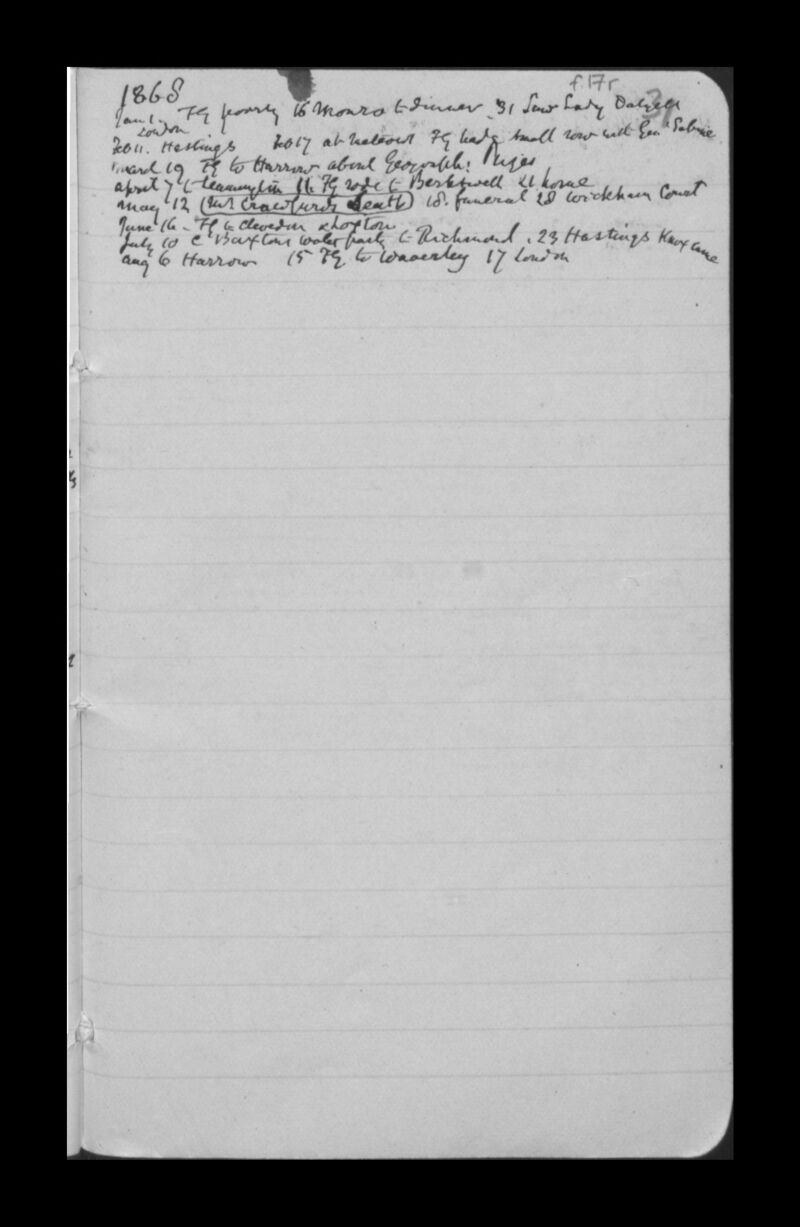 f.17r
1868
Jan 1. FG poorly 16 Monro to dinner, 31 Saw Lady Dalzell
London
Feb 11. Hastings Feb 17 at FG had small row with Genl Sabine
March 19 FG to Harrow about Geograph:
April 7 to Leamington 11. FG rode to Berkswell 21 home
May 12 (Mr Crawfurds death) 18. funeral 28 Wickham Court
June 16. FG to Clevedon & Loxton
July 10 C Buxtons water party to Richmond, 23 Hastings Knox came
Aug 6 Harrow 15 FG to Waverley 17 London